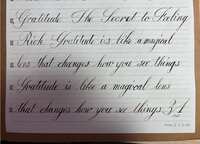 Gratitude The Secret to Feeling
Rich Gratitude is like a magical
lens that changes how you see things
Gratitude is like a magical lens
that changes how you see things